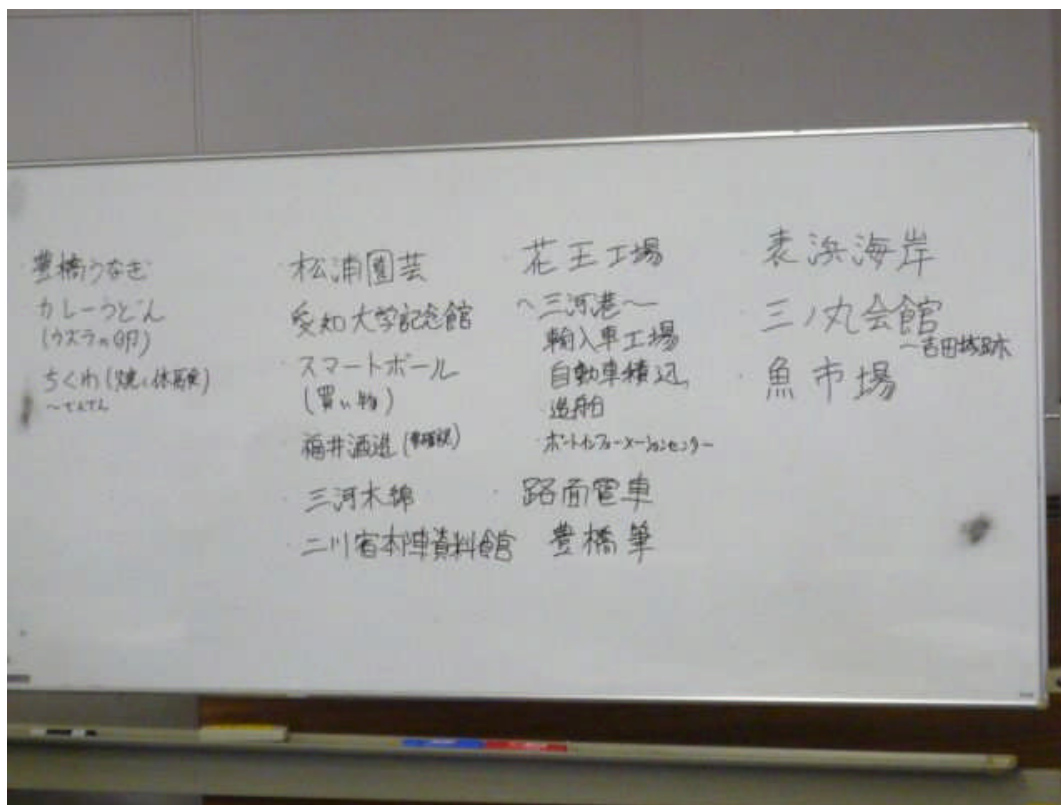 ・豊橋うなぎ
カレーうどん
(ウズラの卵)
ちくわ(焼く体験)
～でんてん
・松浦園芸
愛知大学記念館
・スマートボール
(買い物)
・福井酒造
・三河木綿
・二川宿本陣資料館
・花王工場
～三河港～
輸入車工場
自動車積込
造船
・ポートインフォメーションセンター
・路面電車
豊橋筆
・表浜海岸
・三ノ丸会館
～吉田城跡
・魚市場